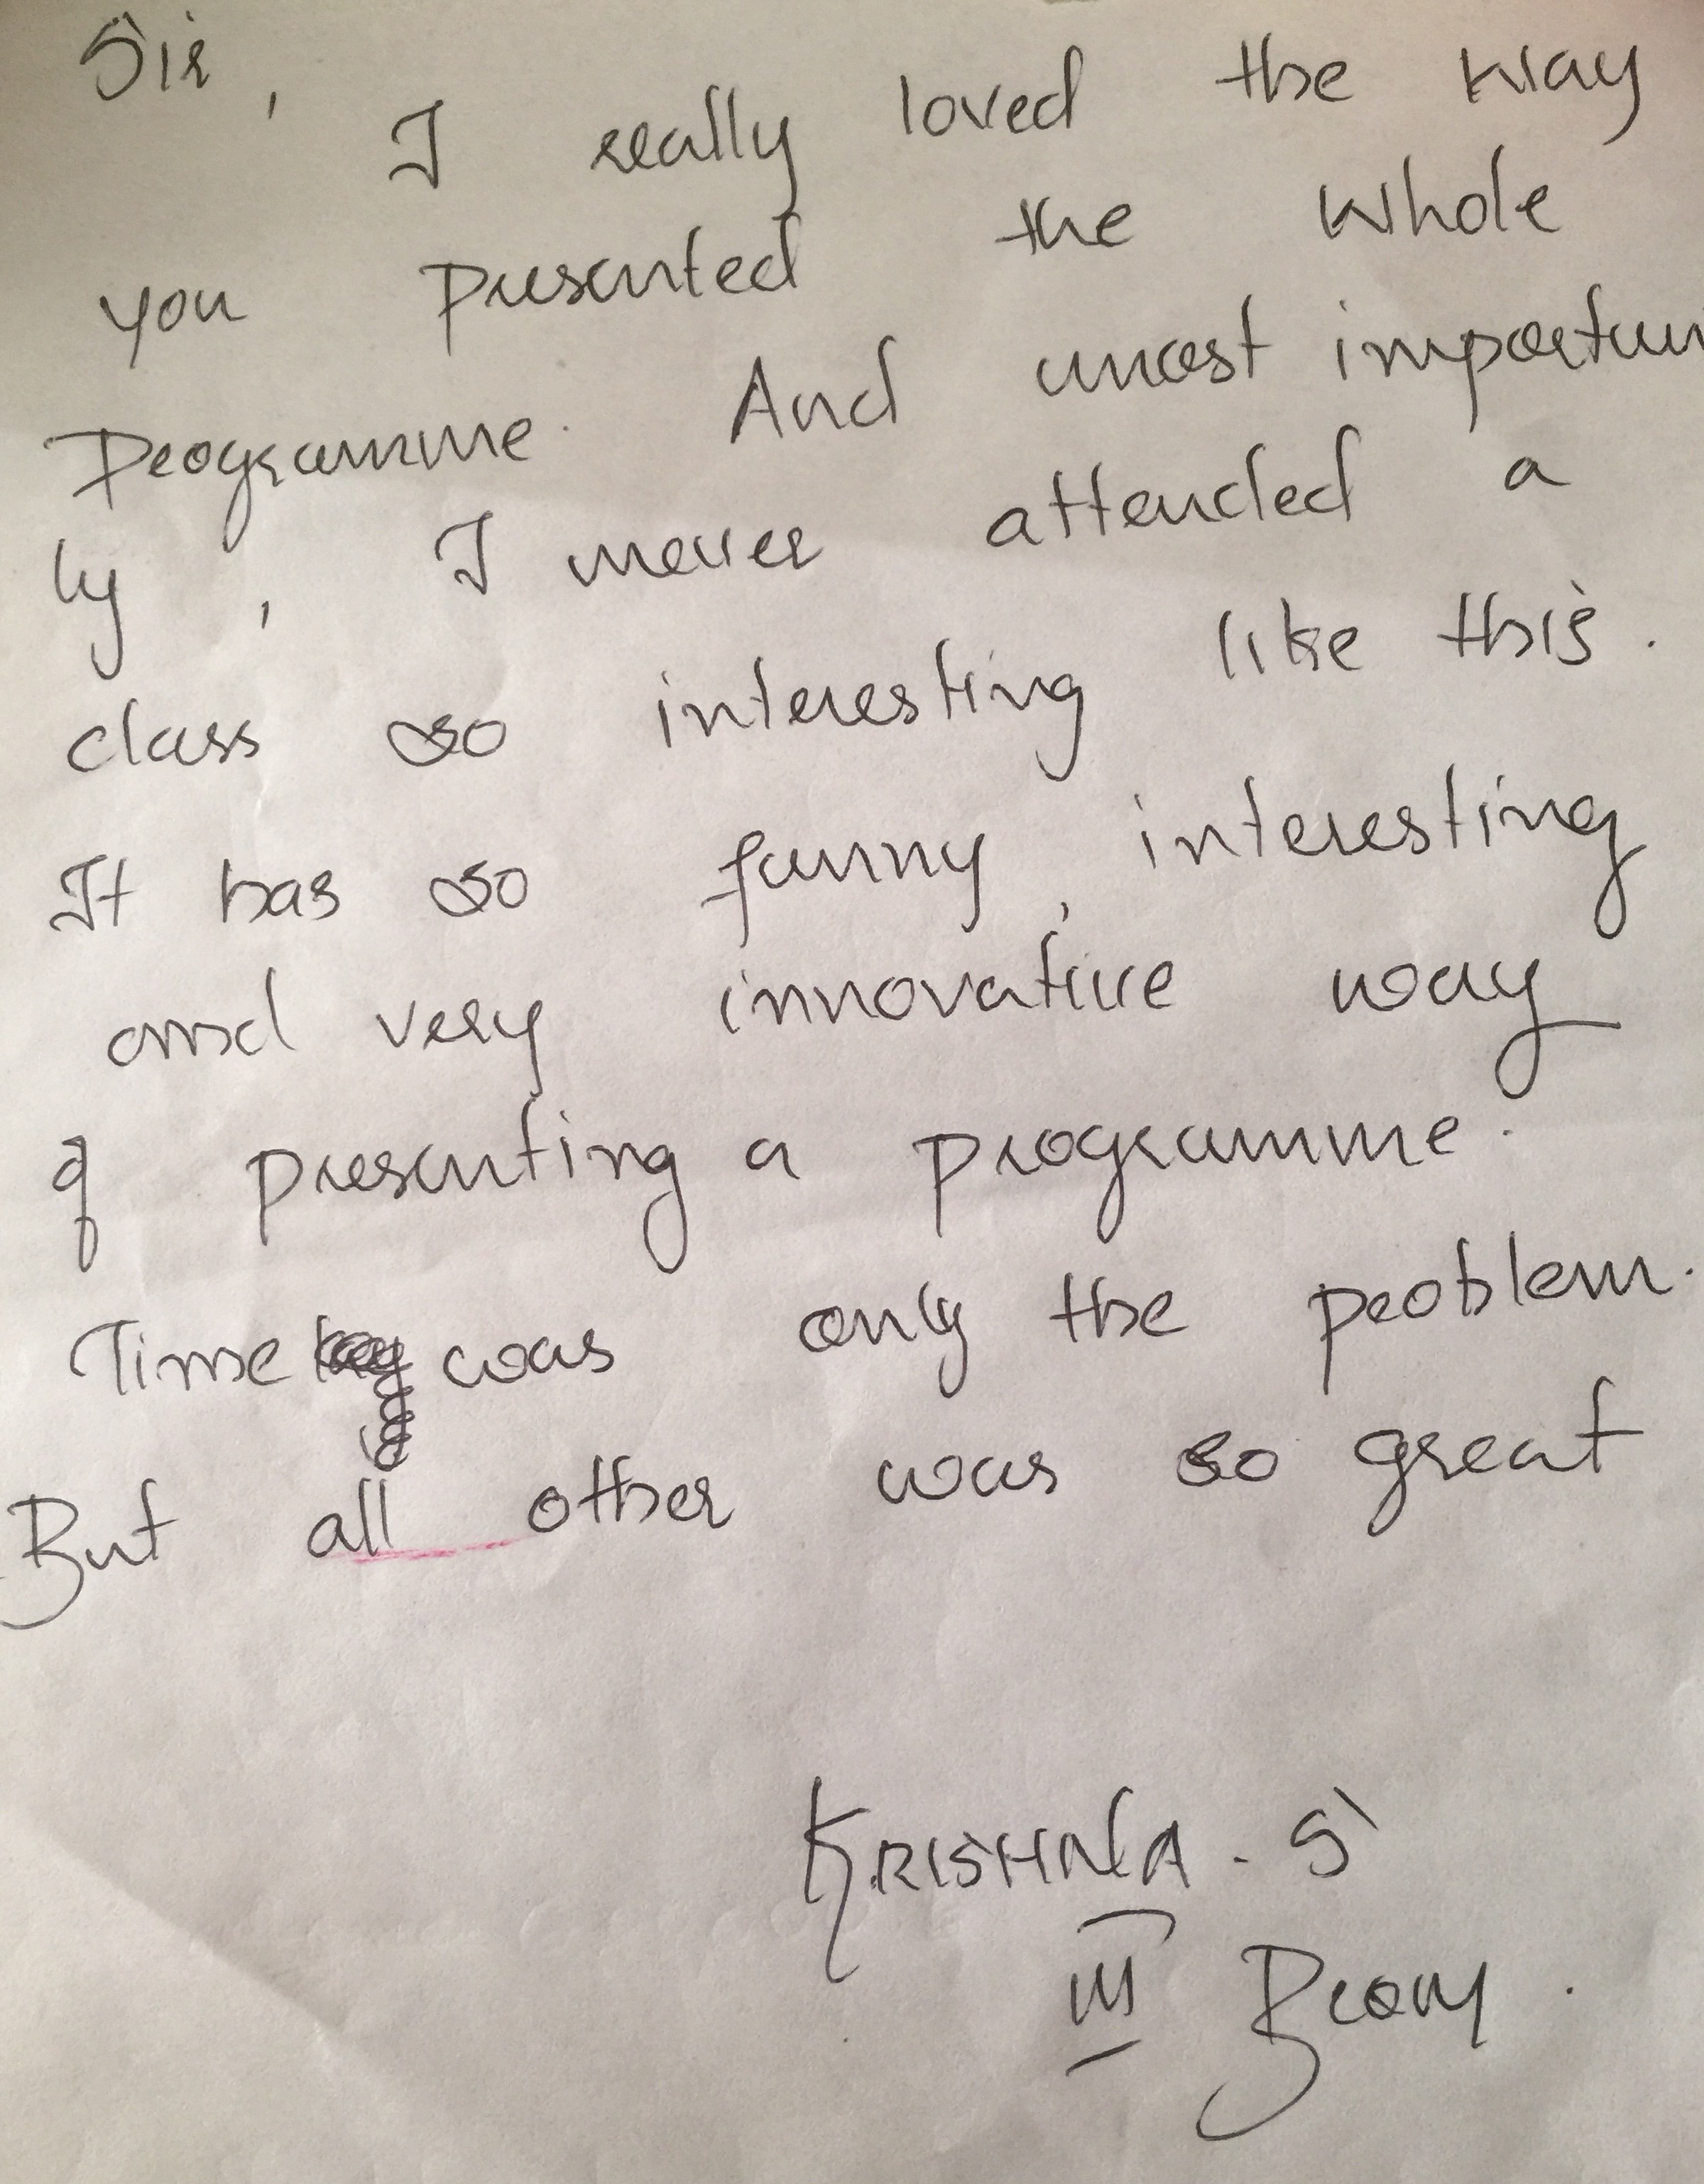 Sir,
I really loved the way
you presented the whole
Programme. And most importan
ly, I never attended a
class so interesting like this.
It has so funny, interesting
and very innovative way
of presenting a programme.
Time was only the problem.
But all other was so great
KRISHNA . S
III Bcom.